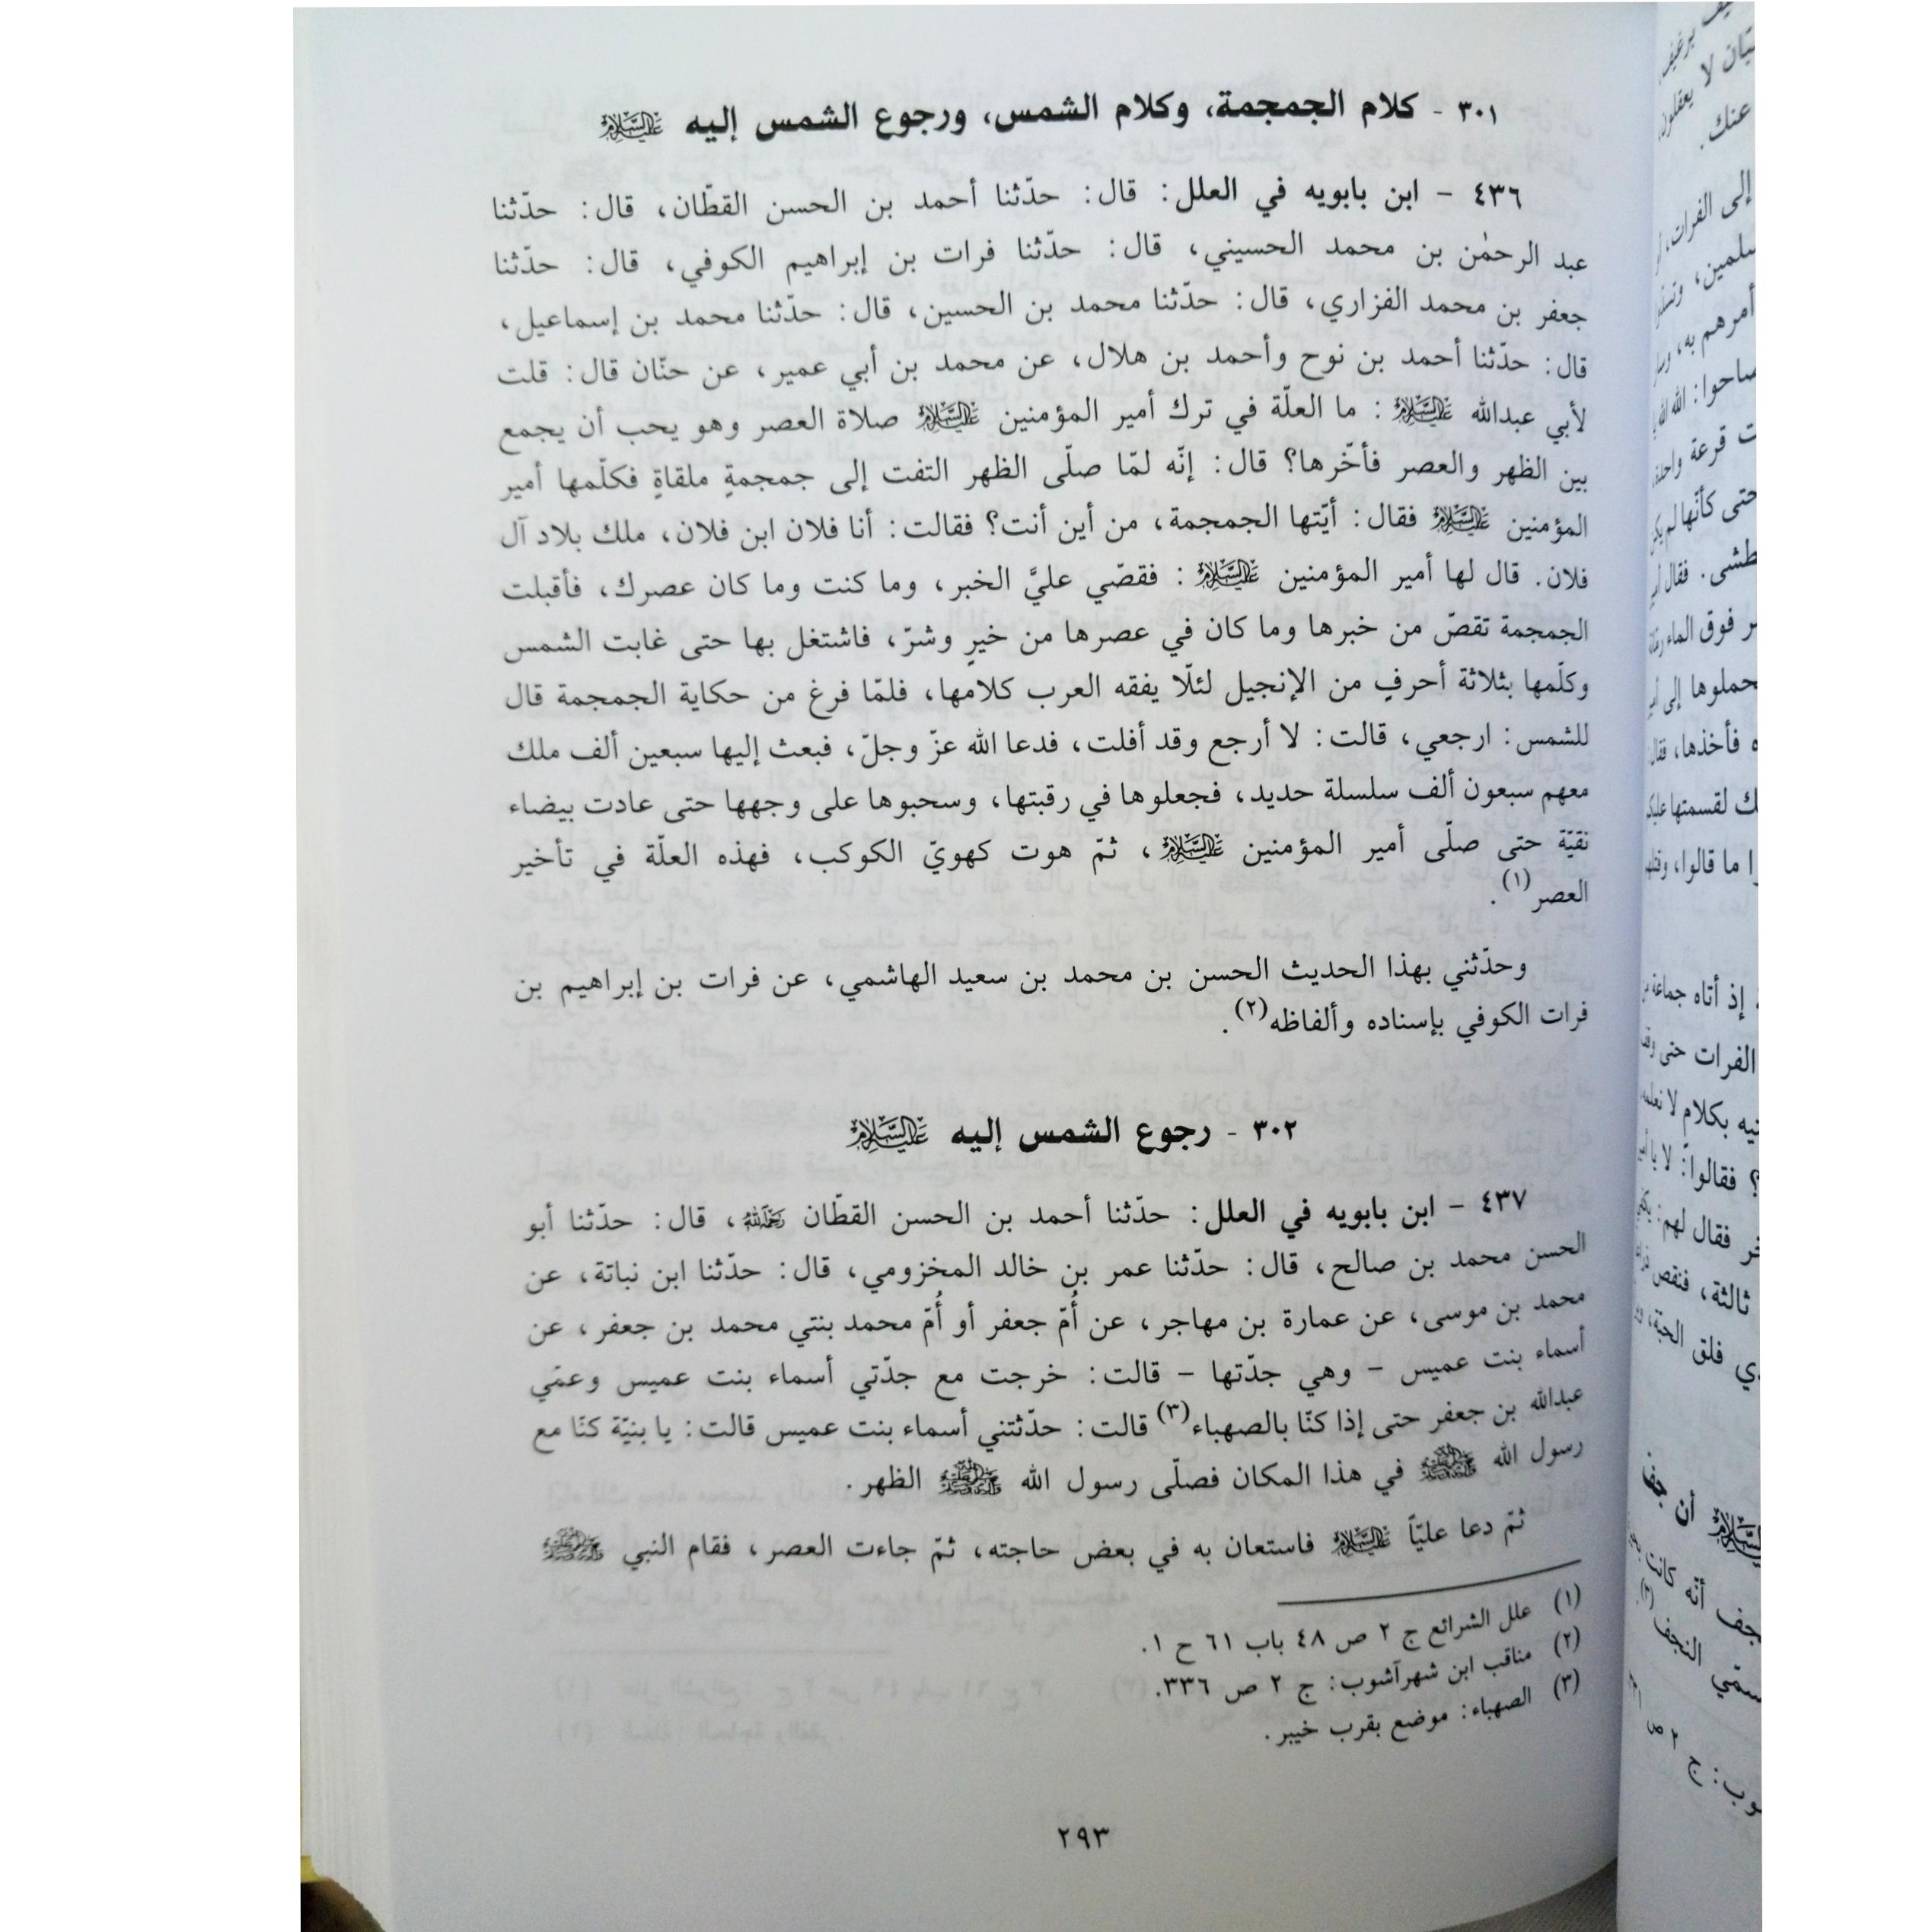 ٣٠١ - كلام الجمجمة، وكلام الشمس، ورجوع الشمس إليه عليه السلام
٤٣٦ - ابن بابويه في العلل: قال: حدّثنا أحمد بن الحسن القطّان، قال: حدّثنا
عبد الرحمٰن بن محمد الحسيني، قال: حدّثنا فرات بن إبراهيم الكوفي، قال: حدّثنا
جعفر بن محمد الفزاري، قال: حدّثنا محمد بن الحسين، قال: حدّثنا محمد بن إسماعيل،
قال: حدّثنا أحمد بن نوح وأحمد بن هلال، عن محمد بن أبي عمير، عن حنّان قال: قلت
لأبي عبدالله عليه السلام: ما العلّة في ترك أمير المؤمنين عليه السلام صلاة العصر وهو يحب أن يجمع
بين الظهر والعصر فأخّرها؟ قال: إنّه لمّا صلّى الظهر التفت إلى جمجمةٍ ملقاةٍ فكلّمها أمير
المؤمنين عليه السلام فقال: أيّتها الجمجمة، من أين أنت؟ فقالت: أنا فلان ابن فلان، ملك بلاد آل
فلان. قال لها أمير المؤمنين عليه السلام: فقصّي عليَّ الخبر، وما كنت وما كان عصرك، فأقبلت
الجمجمة تقصّ من خبرها وما كان في عصرها من خيرٍ وشرّ، فاشتغل بها حتى غابت الشمس
وكلّمها بثلاثة أحرفٍ من الإنجيل لئلّا يفقه العرب كلامها، فلمّا فرغ من حكاية الجمجمة قال
للشمس: ارجعي، قالت: لا أرجع وقد أفلت، فدعا الله عزّ وجلّ، فبعث إليها سبعين ألف ملك
معهم سبعون ألف سلسلة حديد، فجعلوها في رقبتها، وسحبوها على وجهها حتى عادت بيضاء
نقيّة حتى صلّى أمير المؤمنين عليه السلام، ثمّ هوت كهويّ الكوكب، فهذه العلّة في تأخير
العصر(١).
وحدّثني بهذا الحديث الحسن بن محمد بن سعيد الهاشمي، عن فرات بن إبراهيم بن
فرات الكوفي بإسناده وألفاظه(٢).
٣٠٢ - رجوع الشمس إليه عليه السلام
٤٣٧ - ابن بابويه في العلل: حدّثنا أحمد بن الحسن القطّان رحمه الله، قال: حدّثنا أبو
الحسن محمد بن صالح، قال: حدّثنا عمر بن خالد المخزومي، قال: حدّثنا ابن نباتة، عن
محمد بن موسى، عن عمارة بن مهاجر، عن أُمّ جعفر أو أُمّ محمد بنتي محمد بن جعفر، عن
أسماء بنت عميس - وهي جدّتها - قالت: خرجت مع جدّتي أسماء بنت عميس وعمّي
عبدالله بن جعفر حتى إذا كنّا بالصهباء(٣) قالت: حدّثتني أسماء بنت عميس قالت: يا بنيّة كنّا مع
رسول الله ﷺ في هذا المكان فصلّى رسول الله ﷺ الظهر.
ثمّ دعا عليّاً عليه السلام فاستعان به في بعض حاجته، ثمّ جاءت العصر، فقام النبي ﷺ
(١) علل الشرائع ج ٢ ص ٤٨ باب ٦١ ح ١.
(٢) مناقب ابن شهرآشوب: ج ٢ ص ٣٣٦.
(٣) الصهباء: موضع بقرب خيبر.
٢٩٣
لا يعقلون
عنك.
إلى الفرات،
أمرهم به،
قرعة واحدة
حتى كأنّها لم يكن
فوق الماء
فأخذها،
لقسمتها عليكم
ما قالوا،
إذ أتاه جماعة من
الفرات حتى
بكلام لا
؟ فقالوا: لا يا
فقال لهم:
ثالثة،
فلق الحبة،
أن
أنّه كانت
النجف
ج ٢ ص